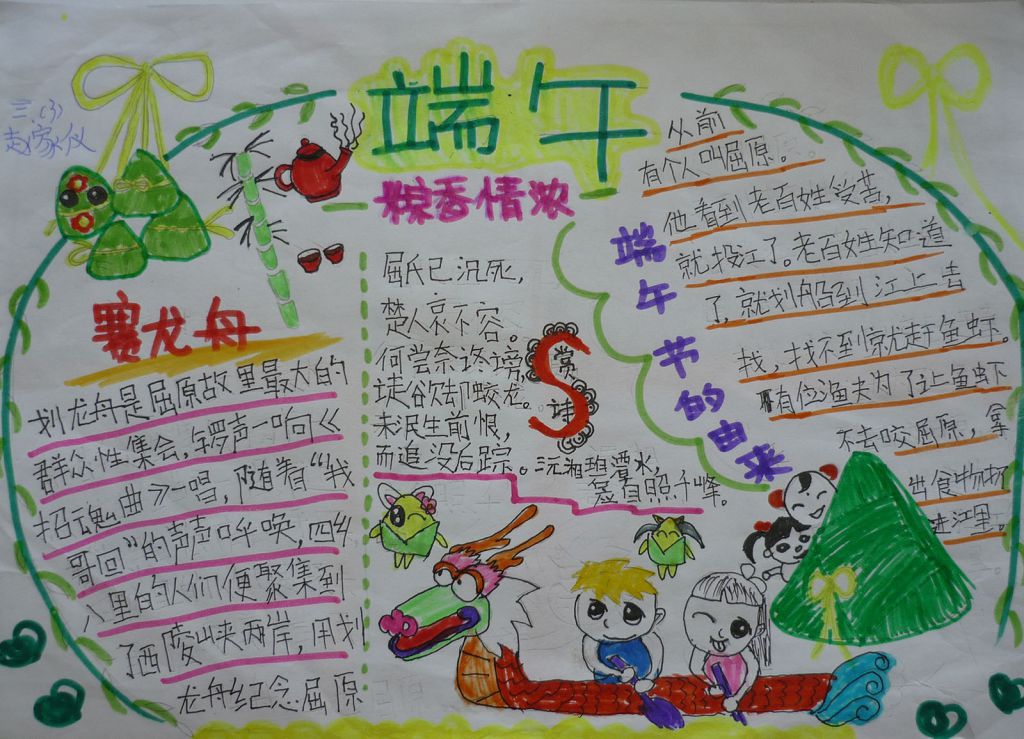 三.(3)
赵家仪
端午
粽香情浓
赛龙舟
划龙舟是屈原故里最大的
群众性集会,锣声一响《
招魂曲》一唱,随着“我
哥回”的声声呼唤,四乡
八里的人们便聚集到
了西陵峡两岸,用划
龙舟纪念屈原
屈氏已沉死,
楚人哀不容。
何尝奈谗谤,
徒欲却蛟龙。
未泯生前恨,
而追没后踪。沅湘碧潭水,
应自照千峰。
赏
诗
端午节的由来
从前
有个人叫屈原。
他看到老百姓受苦,
就投江了。老百姓知道
了,就划船到江上去
找,找不到就赶鱼虾。
有位渔夫为了让鱼虾
不去咬屈原,拿
出食物扔
进江里。